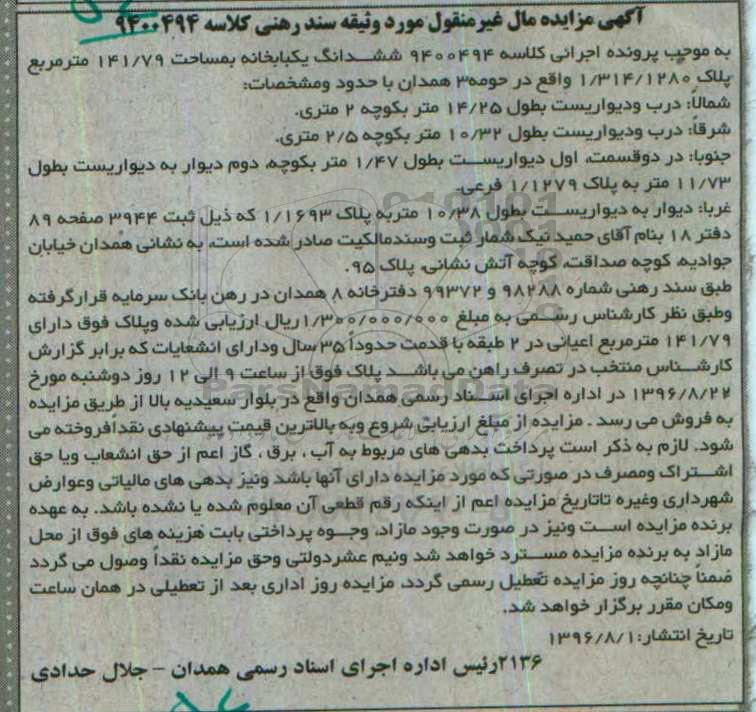 آگهی مزایده مال غیرمنقول مورد وثیقه سند رهنی کلاسه ۹۴۰۰۴۹۴
به موجب پرونده اجرائی کلاسه ۹۴۰۰۴۹۴ ششدانگ یکبابخانه بمساحت ۱۴۱/۷۹ مترمربع
پلاک ۱/۳۱۴/۱۲۸۰ واقع در حومه۳ همدان با حدود ومشخصات:
شمالاً: درب ودیواریست بطول ۱۴/۲۵ متر بکوچه ۲ متری.
شرقاً: درب ودیواریست بطول ۱۰/۳۲ متر بکوچه ۲/۵ متری.
جنوبا: در دوقسمت، اول دیواریست بطول ۱/۴۷ متر بکوچه، دوم دیوار به دیواریست بطول
۱۱/۷۳ متر به پلاک ۱/۱۲۷۹ فرعی.
غربا: دیوار به دیواریست بطول ۱۰/۳۸ متربه پلاک ۱/۱۶۹۳ که ذیل ثبت ۳۹۴۴ صفحه ۸۹
دفتر ۱۸ بنام آقای حمید نیک شمار ثبت وسندمالکیت صادر شده است، به نشانی همدان خیابان
جوادیه، کوچه صداقت، کوچه آتش نشانی، پلاک ۹۵.
طبق سند رهنی شماره ۹۸۲۸۸ و ۹۹۳۷۲ دفترخانه ۸ همدان در رهن بانک سرمایه قرارگرفته
وطبق نظر کارشناس رسمی به مبلغ ۱/۳۰۰/۰۰۰/۰۰۰ریال ارزیابی شده وپلاک فوق دارای
۱۴۱/۷۹ مترمربع اعیانی در ۲ طبقه با قدمت حدوداً ۳۵ سال ودارای انشعابات که برابر گزارش
کارشناس منتخب در تصرف راهن می باشد پلاک فوق از ساعت ۹ الی ۱۲ روز دوشنبه مورخ
۱۳۹۶/۸/۲۲ در اداره اجرای اسناد رسمی همدان واقع در بلوار سعیدیه بالا از طریق مزایده
به فروش می رسد . مزایده از مبلغ ارزیابی شروع وبه بالاترین قیمت پیشنهادی نقداًفروخته می
شود. لازم به ذکر است پرداخت بدهی های مربوط به آب ، برق ، گاز اعم از حق انشعاب ویا حق
اشتراک ومصرف در صورتی که مورد مزایده دارای آنها باشد ونیز بدهی های مالیاتی وعوارض
شهرداری وغیره تاتاریخ مزایده اعم از اینکه رقم قطعی آن معلوم شده یا نشده باشد. به عهده
برنده مزایده است ونیز در صورت وجود مازاد، وجوه پرداختی بابت هزینه های فوق از محل
مازاد به برنده مزایده مسترد خواهد شد ونیم عشردولتی وحق مزایده نقداً وصول می گردد
ضمناً چنانچه روز مزایده تعطیل رسمی گردد، مزایده روز اداری بعد از تعطیلی در همان ساعت
ومکان مقرر برگزار خواهد شد.
تاریخ انتشار:۱۳۹۶/۸/۱
۲۱۳۶رئیس اداره اجرای اسناد رسمی همدان - جلال حدادی